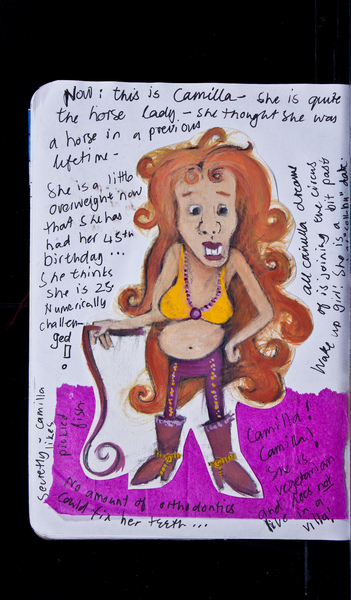 Now: this is Camilla - she is quite
the horse lady. - She thought she was
a horse in a previous
lifetime -
She is a little
overweight now
that she has
had her 45th
birthday ...
She thinks
she is 25
Numerically
challen-
ged!
all camilla dreams
of is joining the circus
Wake up girl! She is a bit past
her "collubi" date..
Secretly - Camilla
likes
pickled
fish
Camilla!
Camilla!
She is
vegetarian
and does not
live in a
villa!
No amount of orthodontics
could fix her teeth ...